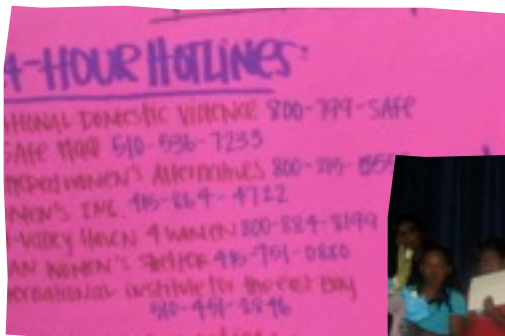 4-HOUR HOTLINES:
ATIONAL DOMESTIC VIOLENCE 800-799-SAFE
SAFE 510-536-7233
WOMEN'S ALTERNATIVES 800-215-
MEN'S INC. 415-864-4722
-VALLEY HAVEN 4 WOMEN 800-884-8199
AN WOMEN'S SHELTER 415-751-0880
ERNATIONAL INSTITUTE FOR THE EAST BAY
510-451-2846